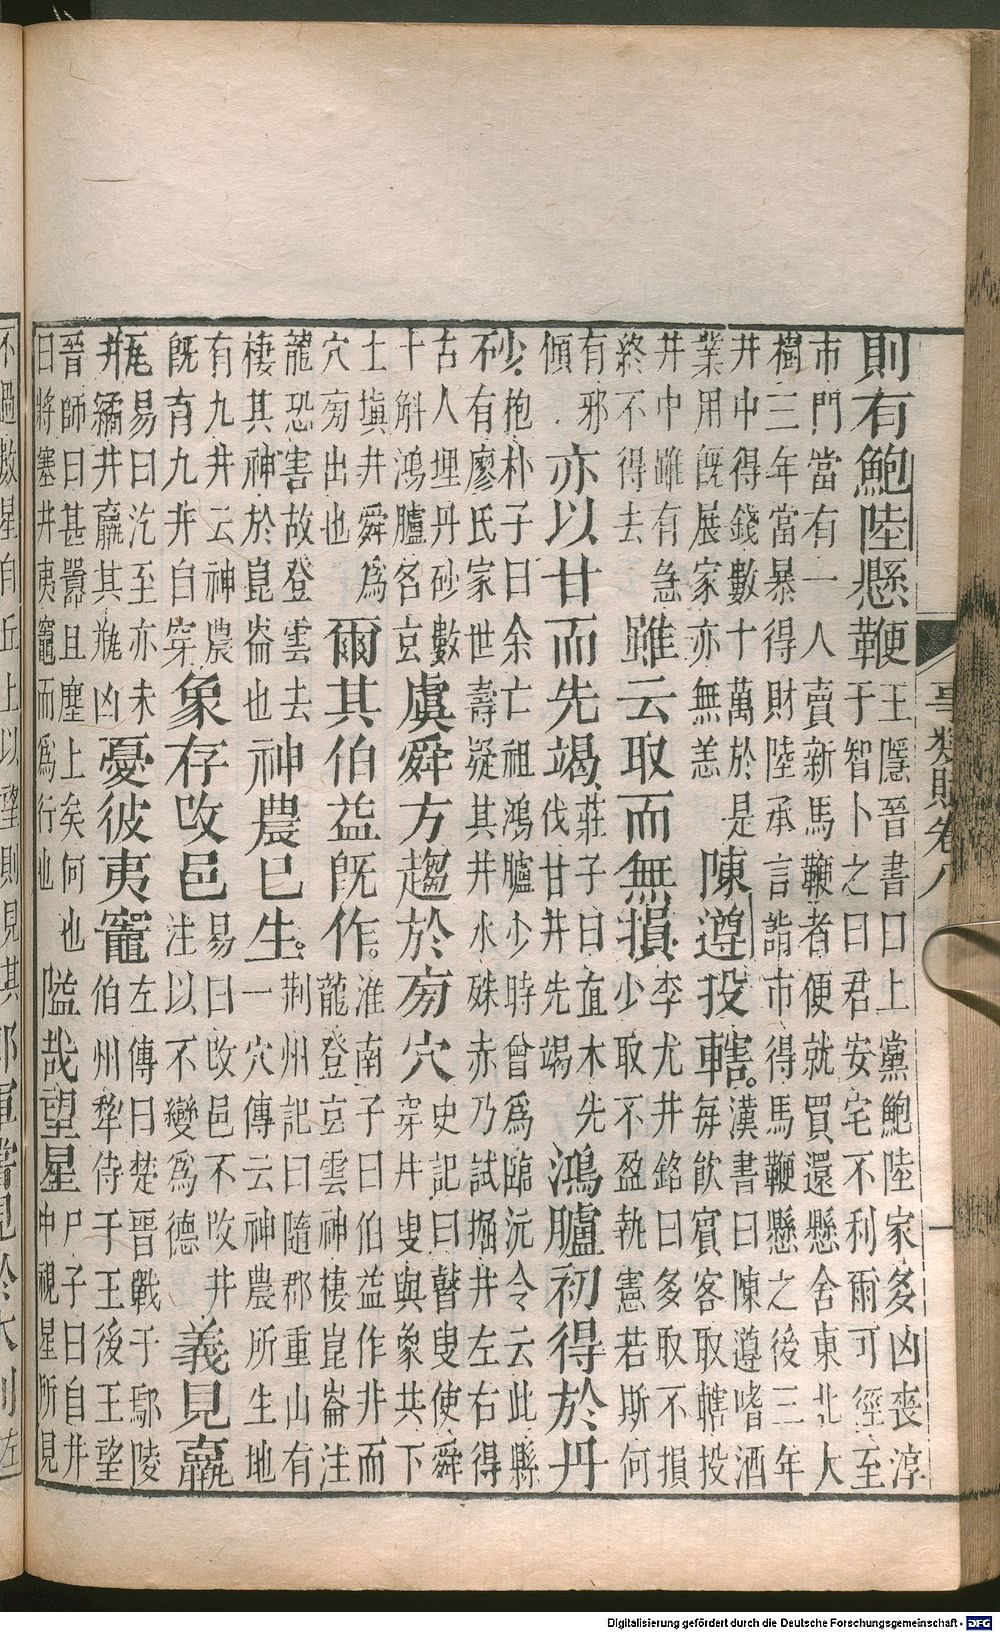 事類賦卷八
一
則有鮑陸懸鞭
王隱晉書曰上黨鮑陸家多凶喪淳
于智卜之曰君安宅不利爾可徑至
市門當有一人賣新馬鞭者便就買還懸舍東北大
樹三年當暴得財陸承言詣市得馬鞭懸之後三年
井中得錢數十萬於是
業用旣展家亦無恙
陳遵投轄。
漢書曰陳遵嗜酒
每飲賓客取轄投
井中雖有急
終不得去
雖云取而無損
李尤井銘曰多取不損
少取不盈執憲若斯何
有邪
傾
亦以甘而先竭
莊子曰直木先
伐甘井先竭
鴻臚初得於丹
砂
抱朴子曰余亡祖鴻臚少時曾爲臨沅令云此縣
有廖氏家世壽疑其井水殊赤乃試掘井左右得
古人埋丹砂數
十斛鴻臚名玄
虞舜方趨於旁穴
史記曰瞽叟使舜
穿井叟與象共下
土塡井舜爲
穴旁出也
爾其伯益旣作。
淮南子曰伯益作井而
龍登玄雲神棲崑崙注
龍恐害故登雲去
棲其神於崑崙也
神農巳生。
荆州記曰隨郡重山有
一穴傳云神農所生地
有九井云神農
旣育九井自穿
象存改邑
易曰改邑不改井
注以不變爲德
義見羸
瓶
易曰汔至亦未
繘井羸其瓶凶
憂彼夷竈
左傳曰楚晉戰于鄢陵
伯州犂侍于王後王望
晉師曰甚囂且塵上矣何也
曰將塞井夷竈而爲行也
隘哉望星
尸子曰自井
中視星所見
不過數星自丘上以望則見其
Digitalisierung gefördert durch die Deutsche Forschungsgemeinschaft - DFG